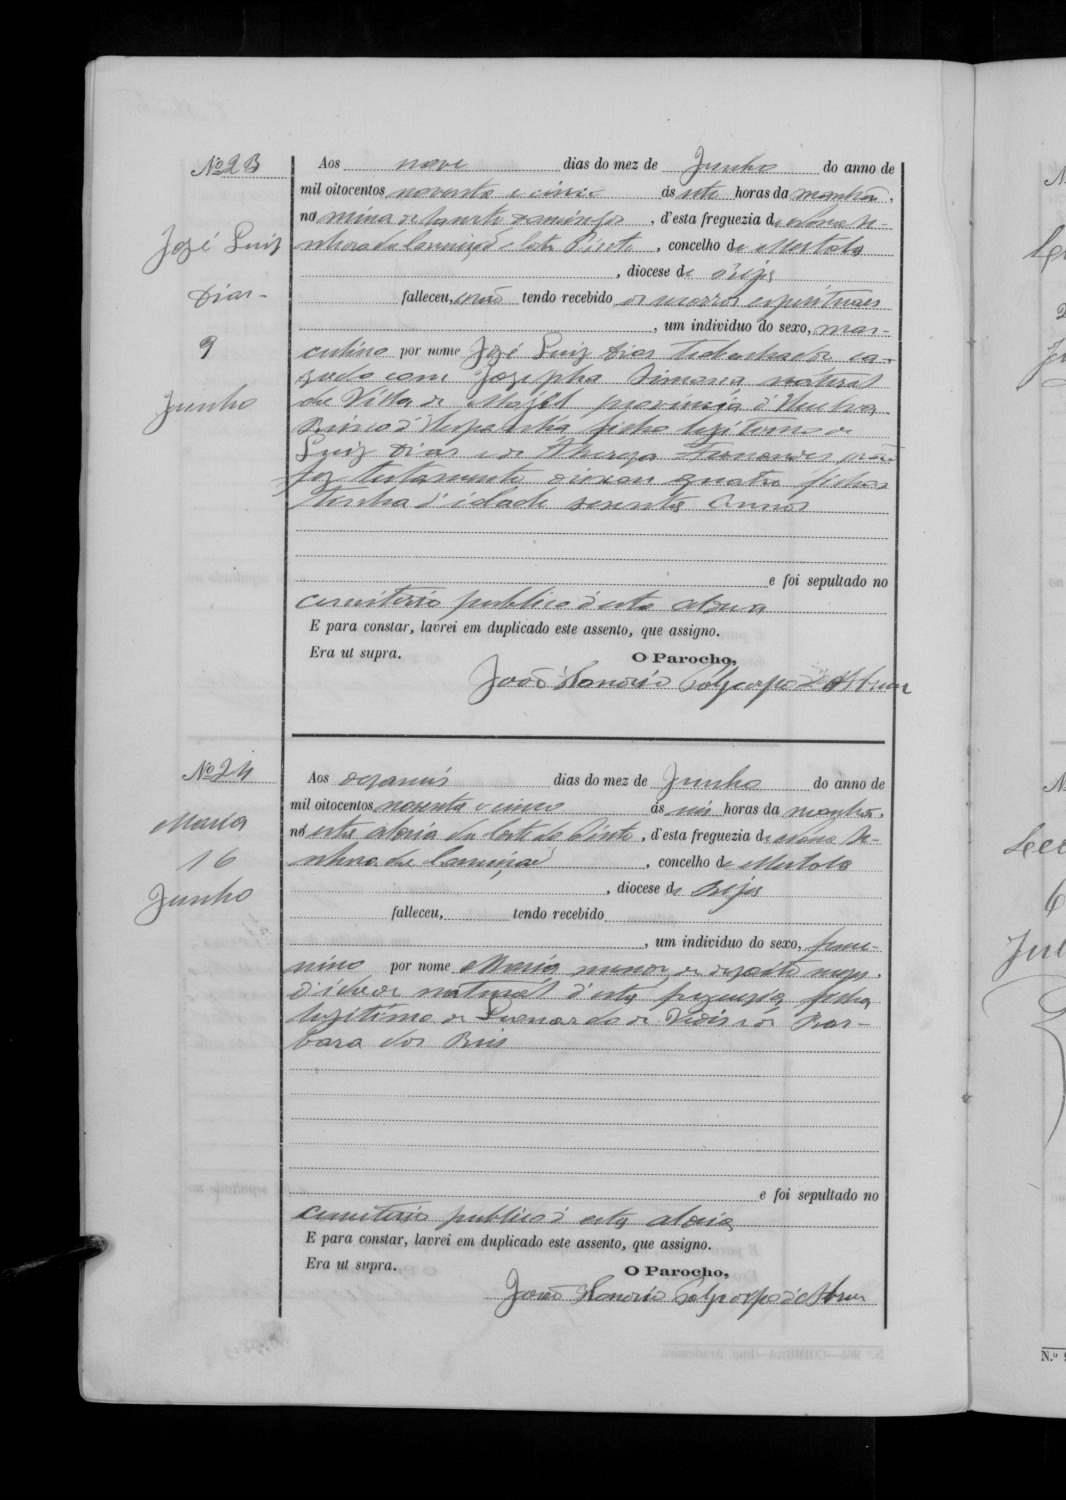 Nº 23
José Luiz
Dias-
9
Junho
Aos nove dias do mez de Junho do anno de
mil oitocentos noventa e cinco ás sete horas da manhã,
na mina de Santo Domingos, d'esta freguezia de Nossa Se-
nhora da Conceição, concelho de Mertola
, diocese de Beja
falleceu, não tendo recebido os socorros espirituaes
, um individuo do sexo, mas-
culino por nome José Luiz Dias trabalhador ca-
zado com Josepha Simoria natural
da Villa de provincia d'Huelva
Reino d'Hespanha filho legitimo de
Luiz Dias e de Thereza Fernandes, não
fez testamento deixou quatro filhos
tinha d'idade sesenta annos
e foi sepultado no
cemiterio publico d'esta aldeia
E para constar, lavrei em duplicado este assento, que assigno.
Era ut supra.
O Parocho,
João Honorio Polycarpo d'Abreu
Nº 24
Maria
16
Junho
Aos dezaseis dias do mez de Junho do anno de
mil oitocentos noventa e cinco ás seis horas da manhã,
n'esta aldeia da Corte do Pinto, d'esta freguezia de Nossa Se-
nhora da Conceição, concelho de Mertola
, diocese de Beja
falleceu, tendo recebido
, um individuo do sexo, femi-
nino por nome Maria menor de dezoito mezes
d'idade natural d'esta freguezia filha
legitima de Leonardo de e de Bar-
bara dos Reis
e foi sepultado no
cemiterio publico d'esta aldeia
E para constar, lavrei em duplicado este assento, que assigno.
Era ut supra.
O Parocho,
João Honorio Polycarpo d'Abreu